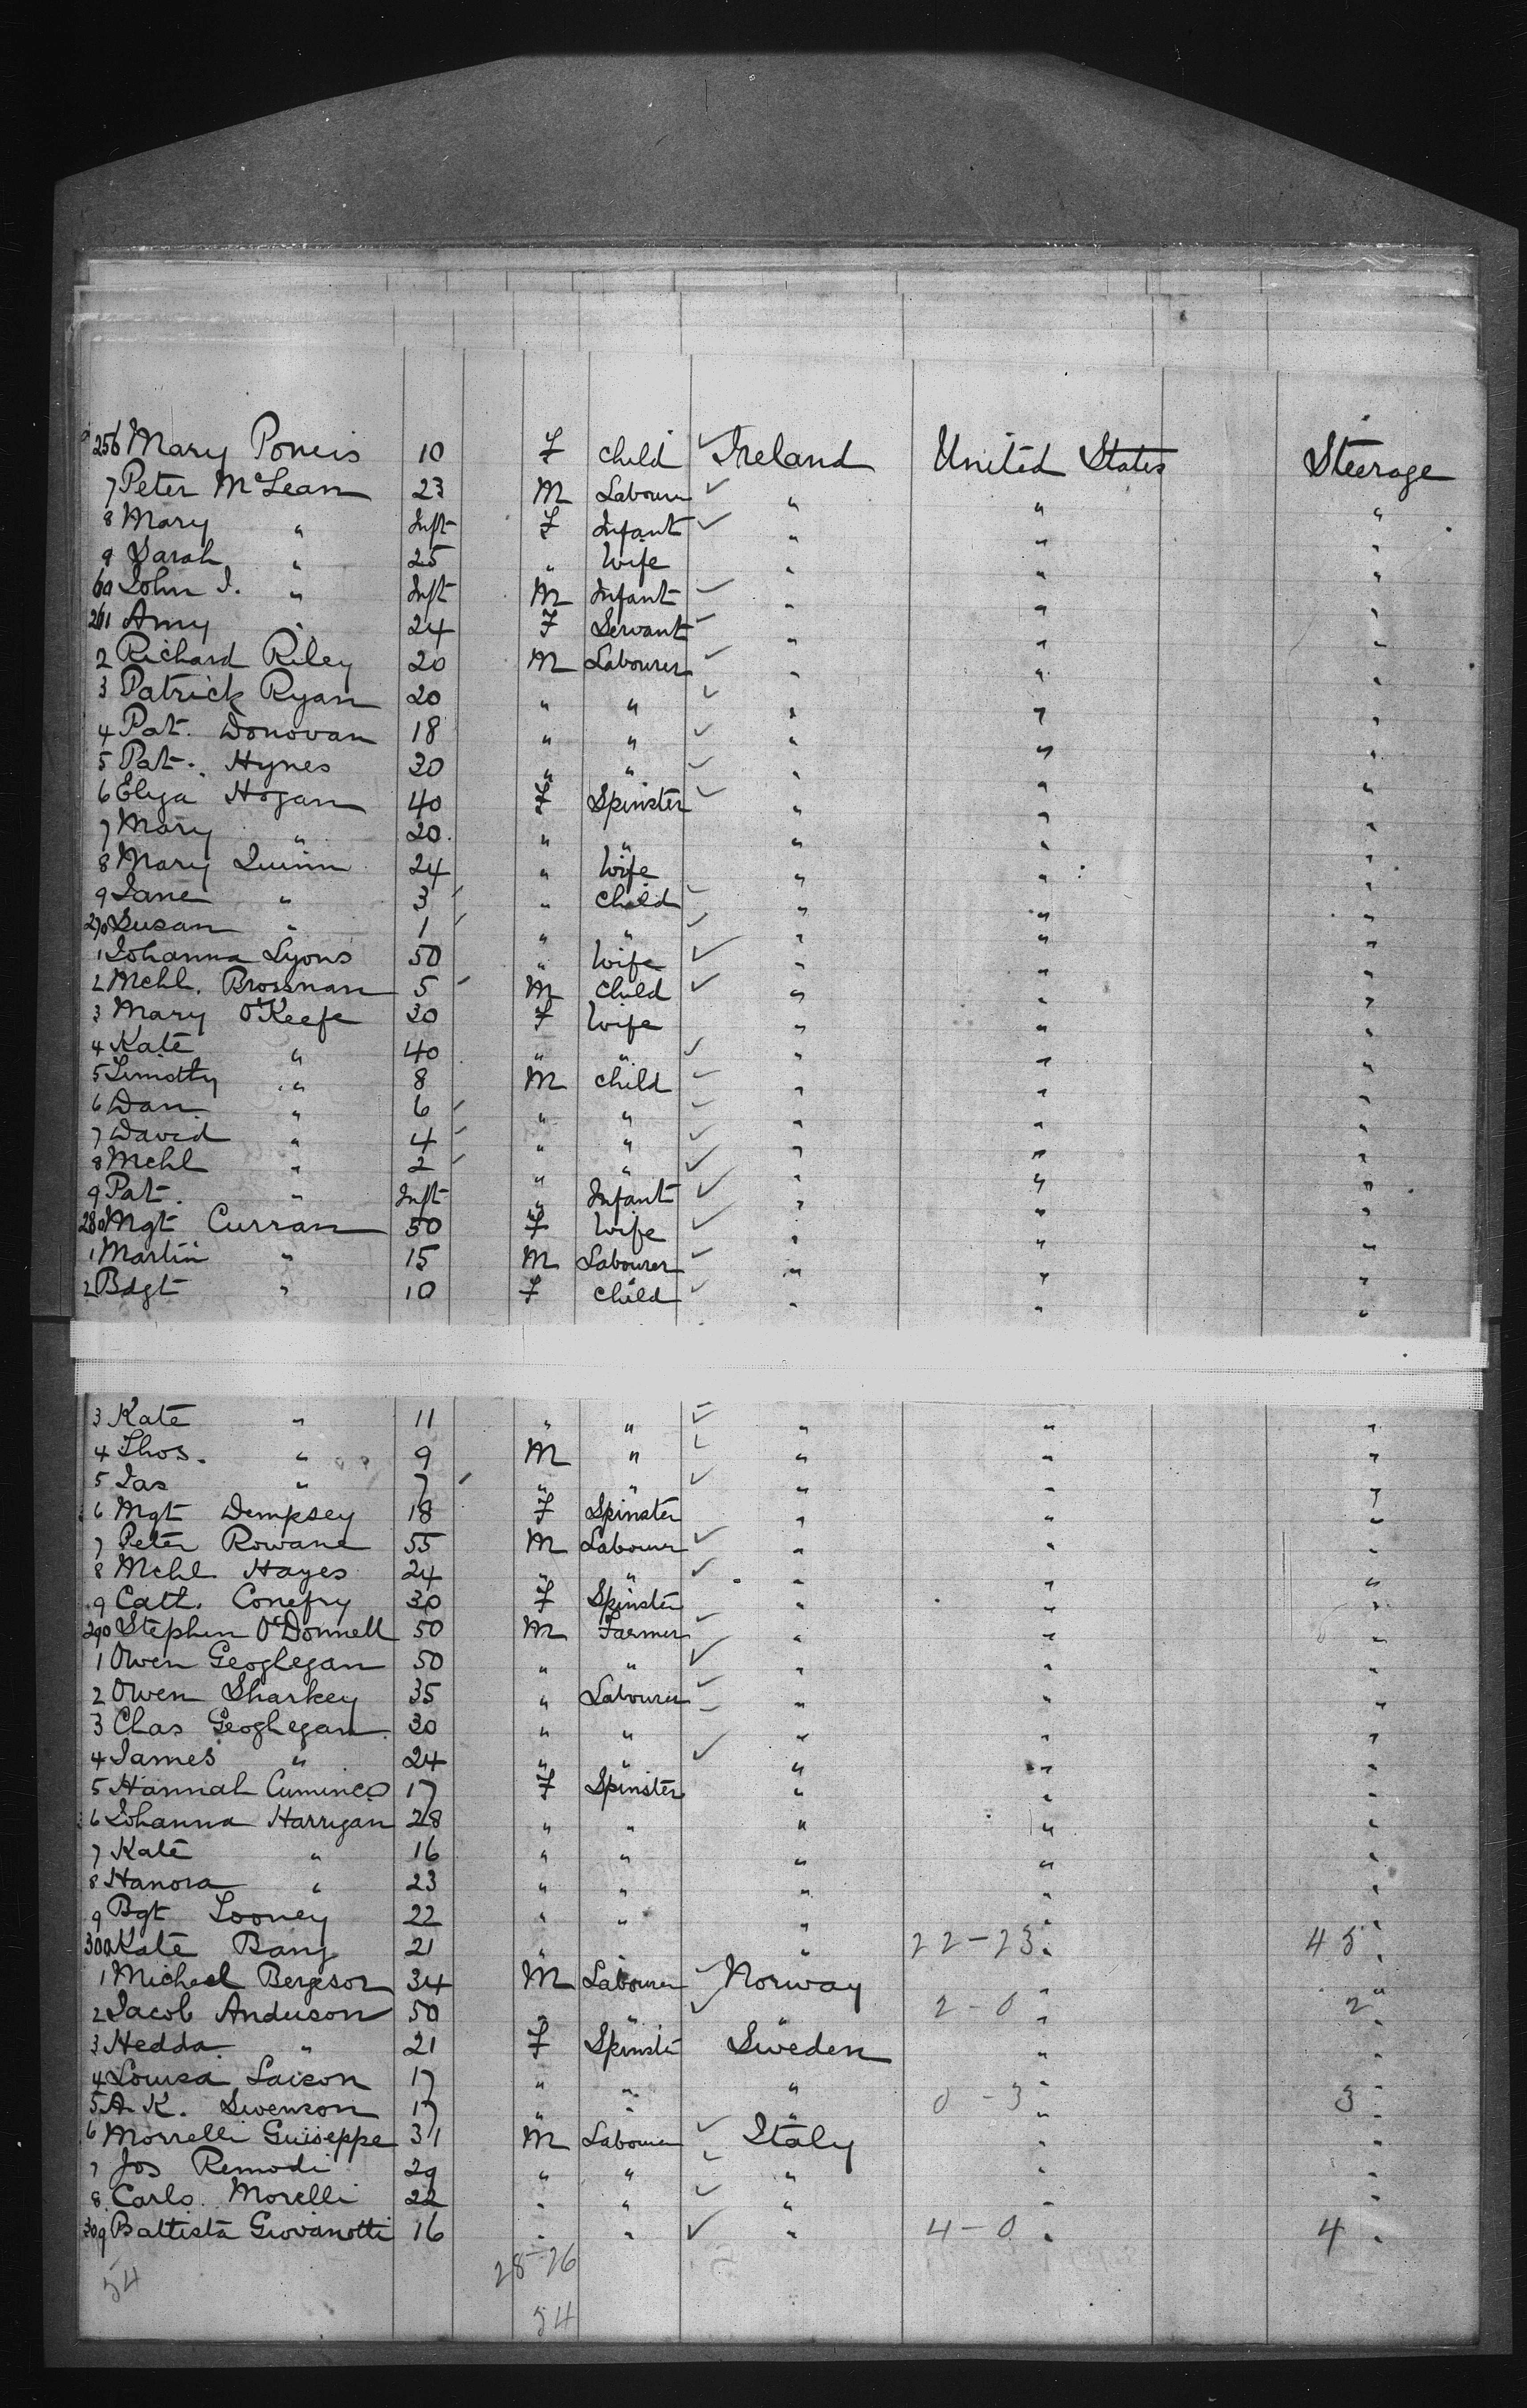 256 Mary Poncis 10 F child ✓ Ireland United States Steerage
7 Peter McLean 23 M Labourer ✓ " " "
8 Mary " Inft F Infant ✓ " " "
9 Sarah " 25 " Wife " " "
60 John J. " Inft M Infant ✓ " " "
261 Amy " 24 F Servant ✓ " " "
2 Richard Riley 20 M Labourer ✓ " " "
3 Patrick Ryan 20 " " ✓ " " "
4 Pat. Donovan 18 " " ✓ " " "
5 Pat. Hynes 30 " " ✓ " " "
6 Eliza Hogan 40 F Spinster ✓ " " "
7 Mary " 20 " " " " "
8 Mary Quinn 24 " Wife " " "
9 Jane " 3 " child ✓ " " "
270 Susan " 1 " " ✓ " " "
1 Johanna Lyons 50 " Wife ✓ " " "
2 Mchl. Brosnan 5 M child ✓ " " "
3 Mary O'Keefe 30 F Wife " " "
4 Kate " 40 " " ✓ " " "
5 Timothy " 8 M child ✓ " " "
6 Dan " 6 " " ✓ " " "
7 David " 4 " " ✓ " " "
8 Mchl " 2 " " ✓ " " "
9 Pat. " Inft " Infant ✓ " " "
280 Mgt Curran 50 F Wife ✓ " " "
1 Martin " 15 M Labourer ✓ " " "
2 Bdgt " 10 F child ✓ " " "
3 Kate " 11 " " ✓ " " "
4 Thos. " 9 M " ✓ " " "
5 Jas " 7 " " ✓ " " "
6 Mgt Dempsey 18 F Spinster " " "
7 Peter Rowane 55 M Labourer ✓ " " "
8 Mchl Hayes 24 " " ✓ " " "
9 Cath. Conefry 30 F Spinster " " "
290 Stephen O'Donnell 50 M Farmer ✓ " " "
1 Owen Geoglegan 50 " " ✓ " " "
2 Owen Sharkey 35 " Labourer ✓ " " "
3 Chas Geoghegan 30 " " ✓ " " "
4 James " 24 " " ✓ " " "
5 Hannah 17 F Spinster " " "
6 Johanna Harrigan 28 " " " " "
7 Kate " 16 " " " " "
8 Hanora " 23 " " " " "
9 Bgt Looney 22 " " " " "
300 Kate Bang 21 " " " 22-23 " 45 "
1 Micheal Bergeson 34 M Labourer ✓ Norway " "
2 Jacob Anderson 50 " " ✓ " 2-0 " 2 "
3 Hedda " 21 F Spinster Sweden " "
4 Louisa Laison 17 " " " " "
5 A. K. Swenson 17 " " " 0-3 " 3 "
6 Morrelli Guiseppe 31 M Labourer ✓ Italy " "
7 Jos Remodi 29 " " ✓ " " "
8 Carlo. Morelli 22 " " ✓ " " "
309 Battista Giovanotti 16 " " ✓ " 4-0 " 4 "
54 28-26
54